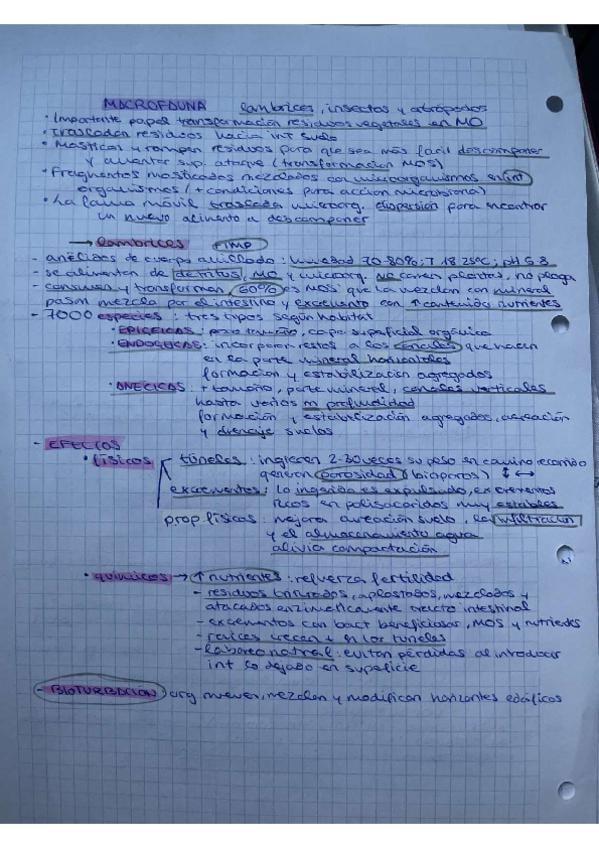 MACROFAUNA lombrices, insectos y artrópodos
· Importante papel transformación residuos vegetales en MO
· Trascadan residuos hacia int suelo
· Mastican y rompen residuos para que sea más facil descomponer
y aumentar sup. ataque (transformacion MOS)
· Fragmentos masticados mezclados con microorganismos en int
organismos (+ condiciones para accion microbiana)
· La fauna móvil traslada microorg. dispersión para encontrar
un nuevo alimento a descomponer
→ lombrices PIMP
- anélidos de cuerpo anillado: humedad 70-80%; T 18-25ºC; pH 5-8
- se alimentan de detritus, MO y microorg. No comen plantas, no plaga
- consumen y transforman 60% es MOS que la mezclan con mineral
pasan mezcla por el intestino y excremento con ↑ contenido nutrientes
- 7000 especies: tres tipos según habitat
· EPIGEICAS: poco tamaño, capa superficial orgánica
· ENDOGEICAS: incorporan restos a los canales que hacen
en la parte mineral horizontales
formacion y estabilización agregados
· ANECICAS: + tamaño, parte mineral, canales verticales
hasta varios m profundidad
formación y estabilización agregados, aireación
y drenaje suelos
- EFECTOS
· físicos túneles: ingieren 2-30 veces su peso en camino recorrido
generan porosidad (bioporos) ↕ ↔
excrementos: lo ingerido es expulsado, excrementos
ricos en polisacaridos muy estables
prop físicas: mejora aireación suelo, la infiltracion
y el almacenamiento agua
alivia compactación
· químicos → ↑ nutrientes: refuerza fertilidad
- residuos triturados, aplastados, mezclados y
atacados enzimaticamente tracto intestinal
- excrementos con bact beneficiosas, MOS y nutrientes
- raices crecen + en los tuneles
- laboreo natural: evitan pérdidas al introducir
int lo dejado en superficie
- BIOTURBACION: org mueven, mezclan y modifican horizontes edáficos